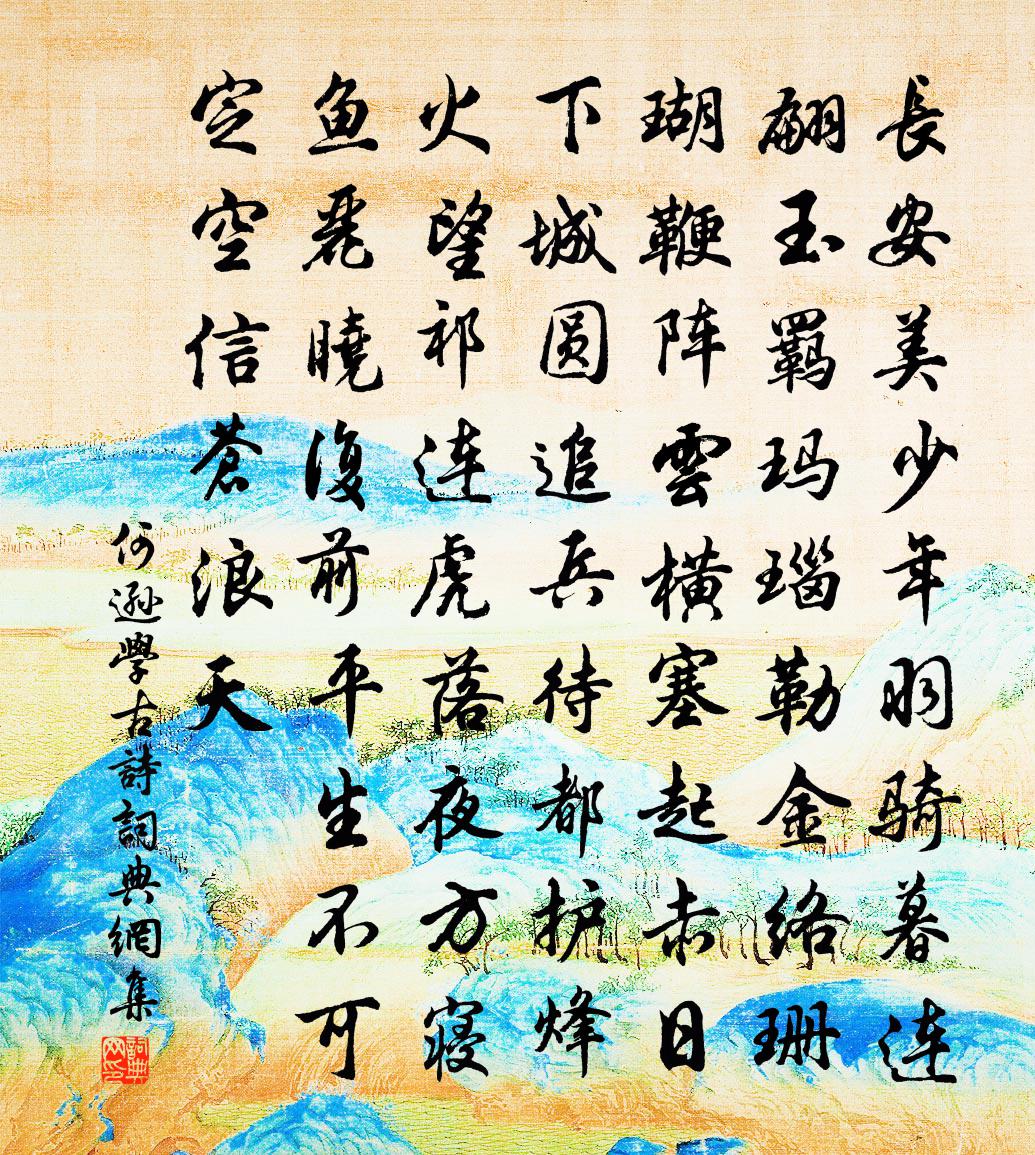 長安美少年羽骑暮连
翩玉羈玛瑙勒金络珊
瑚鞭阵雲横塞起赤日
下城圆追兵待都护烽
火望祁连虎落夜方寝
鱼麗曉復前平生不可
定空信蒼浪天
何遜學古詩詞典網集